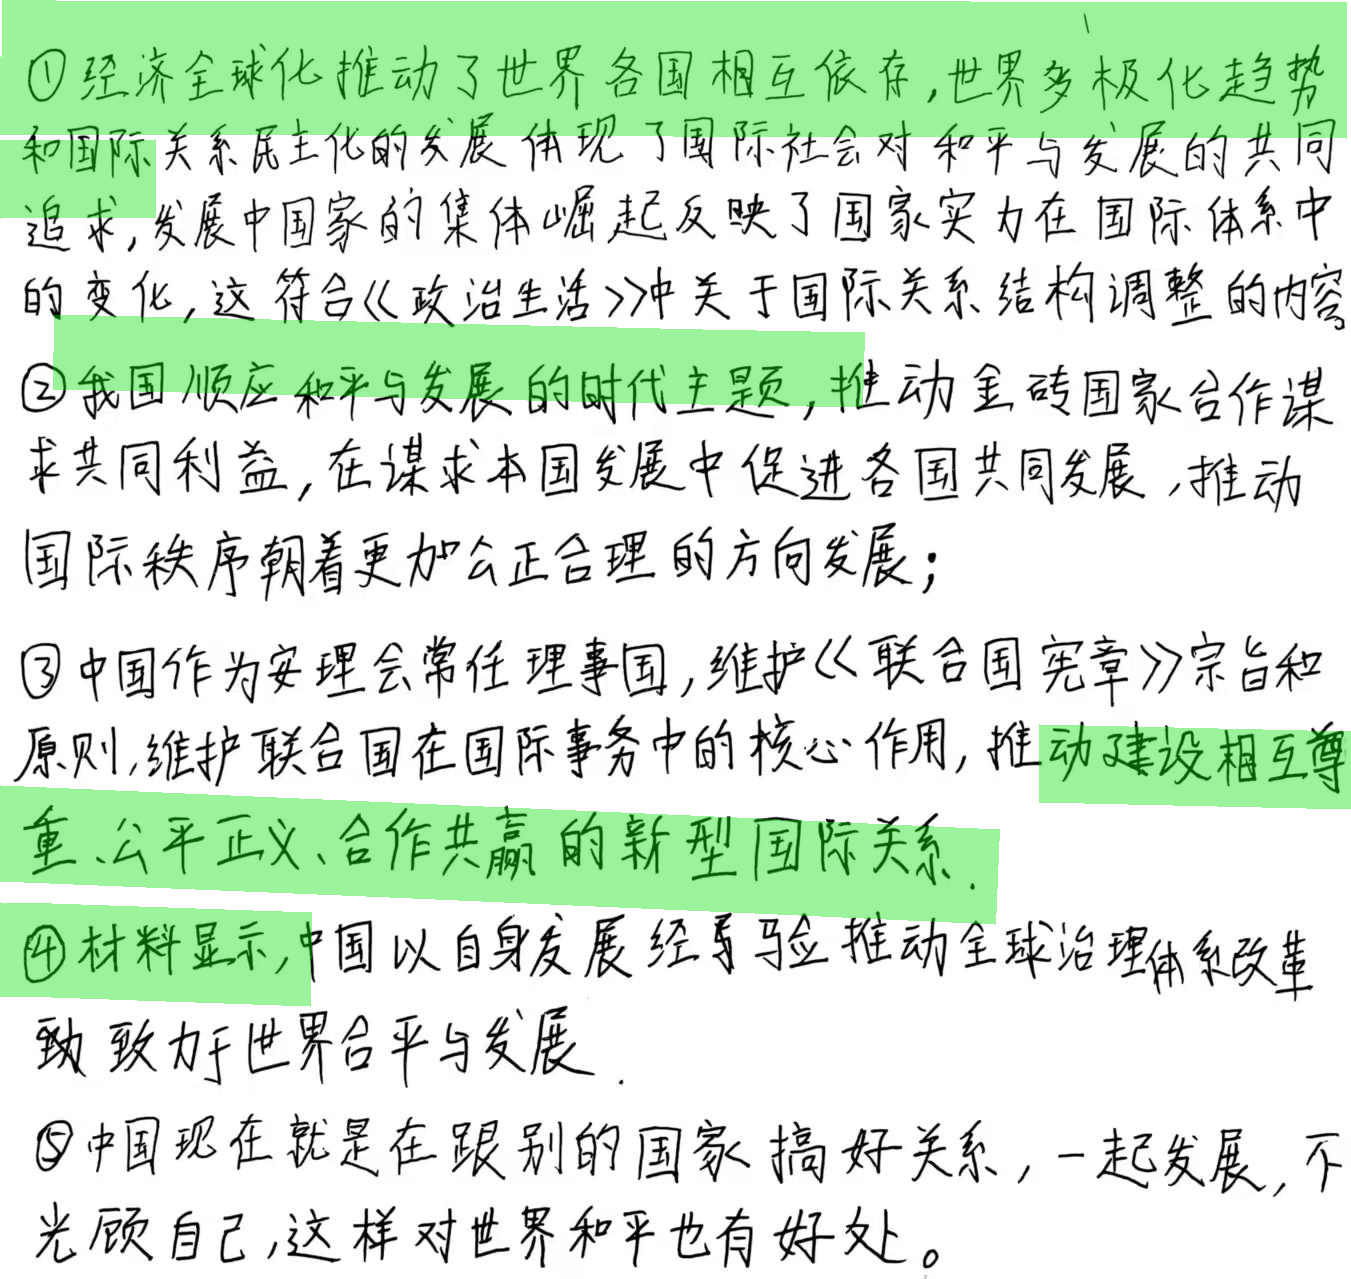 ①经济全球化推动了世界各国相互依存,世界多极化趋势
和国际关系民主化的发展体现了国际社会对和平与发展的共同
追求,发展中国家的集体崛起反映了国家实力在国际体系中
的变化,这符合《政治生活》中关于国际关系结构调整的内容。
②我国顺应和平与发展的时代主题,推动金砖国家合作谋
求共同利益,在谋求本国发展中促进各国共同发展,推动
国际秩序朝着更加公正合理的方向发展;
③中国作为安理会常任理事国,维护《联合国宪章》宗旨和
原则,维护联合国在国际事务中的核心作用,推动建设相互尊
重、公平正义、合作共赢的新型国际关系.
④材料显示,中国以自身发展经验推动全球治理体系改革
致力于世界合平与发展.
⑤中国现在就是在跟别的国家搞好关系,一起发展,不
光顾自己,这样对世界和平也有好处。